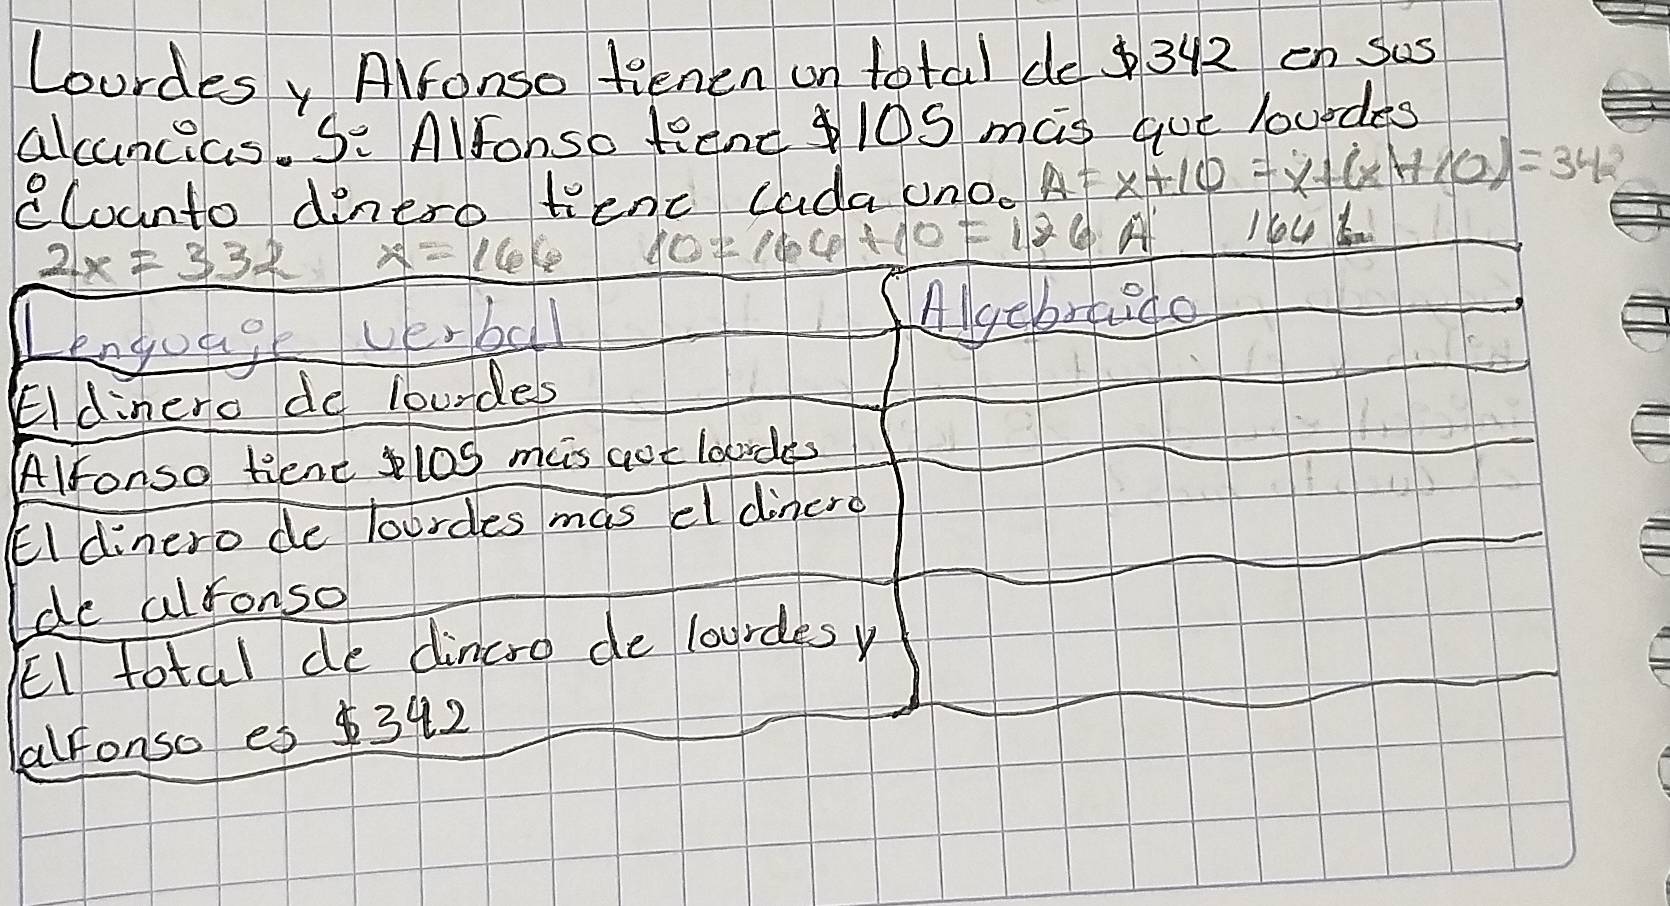 Lourdes y Alfonso tienen un total de $342 en sus
alcancias. Si Alfonso tiene $105 más que lourdes
¿Cuanto dinero tiene cada uno. A = x+10 = x+(x+10)=342
2x = 332 x = 166 10=166+10=176 A 166 L
Lenguaje verbal Algebraico
El dinero de lourdes
Alfonso tiene $105 más que lourdes
El dinero de lourdes mas el dinero
de alfonso
El total de dinero de lourdes y
alfonso es $342